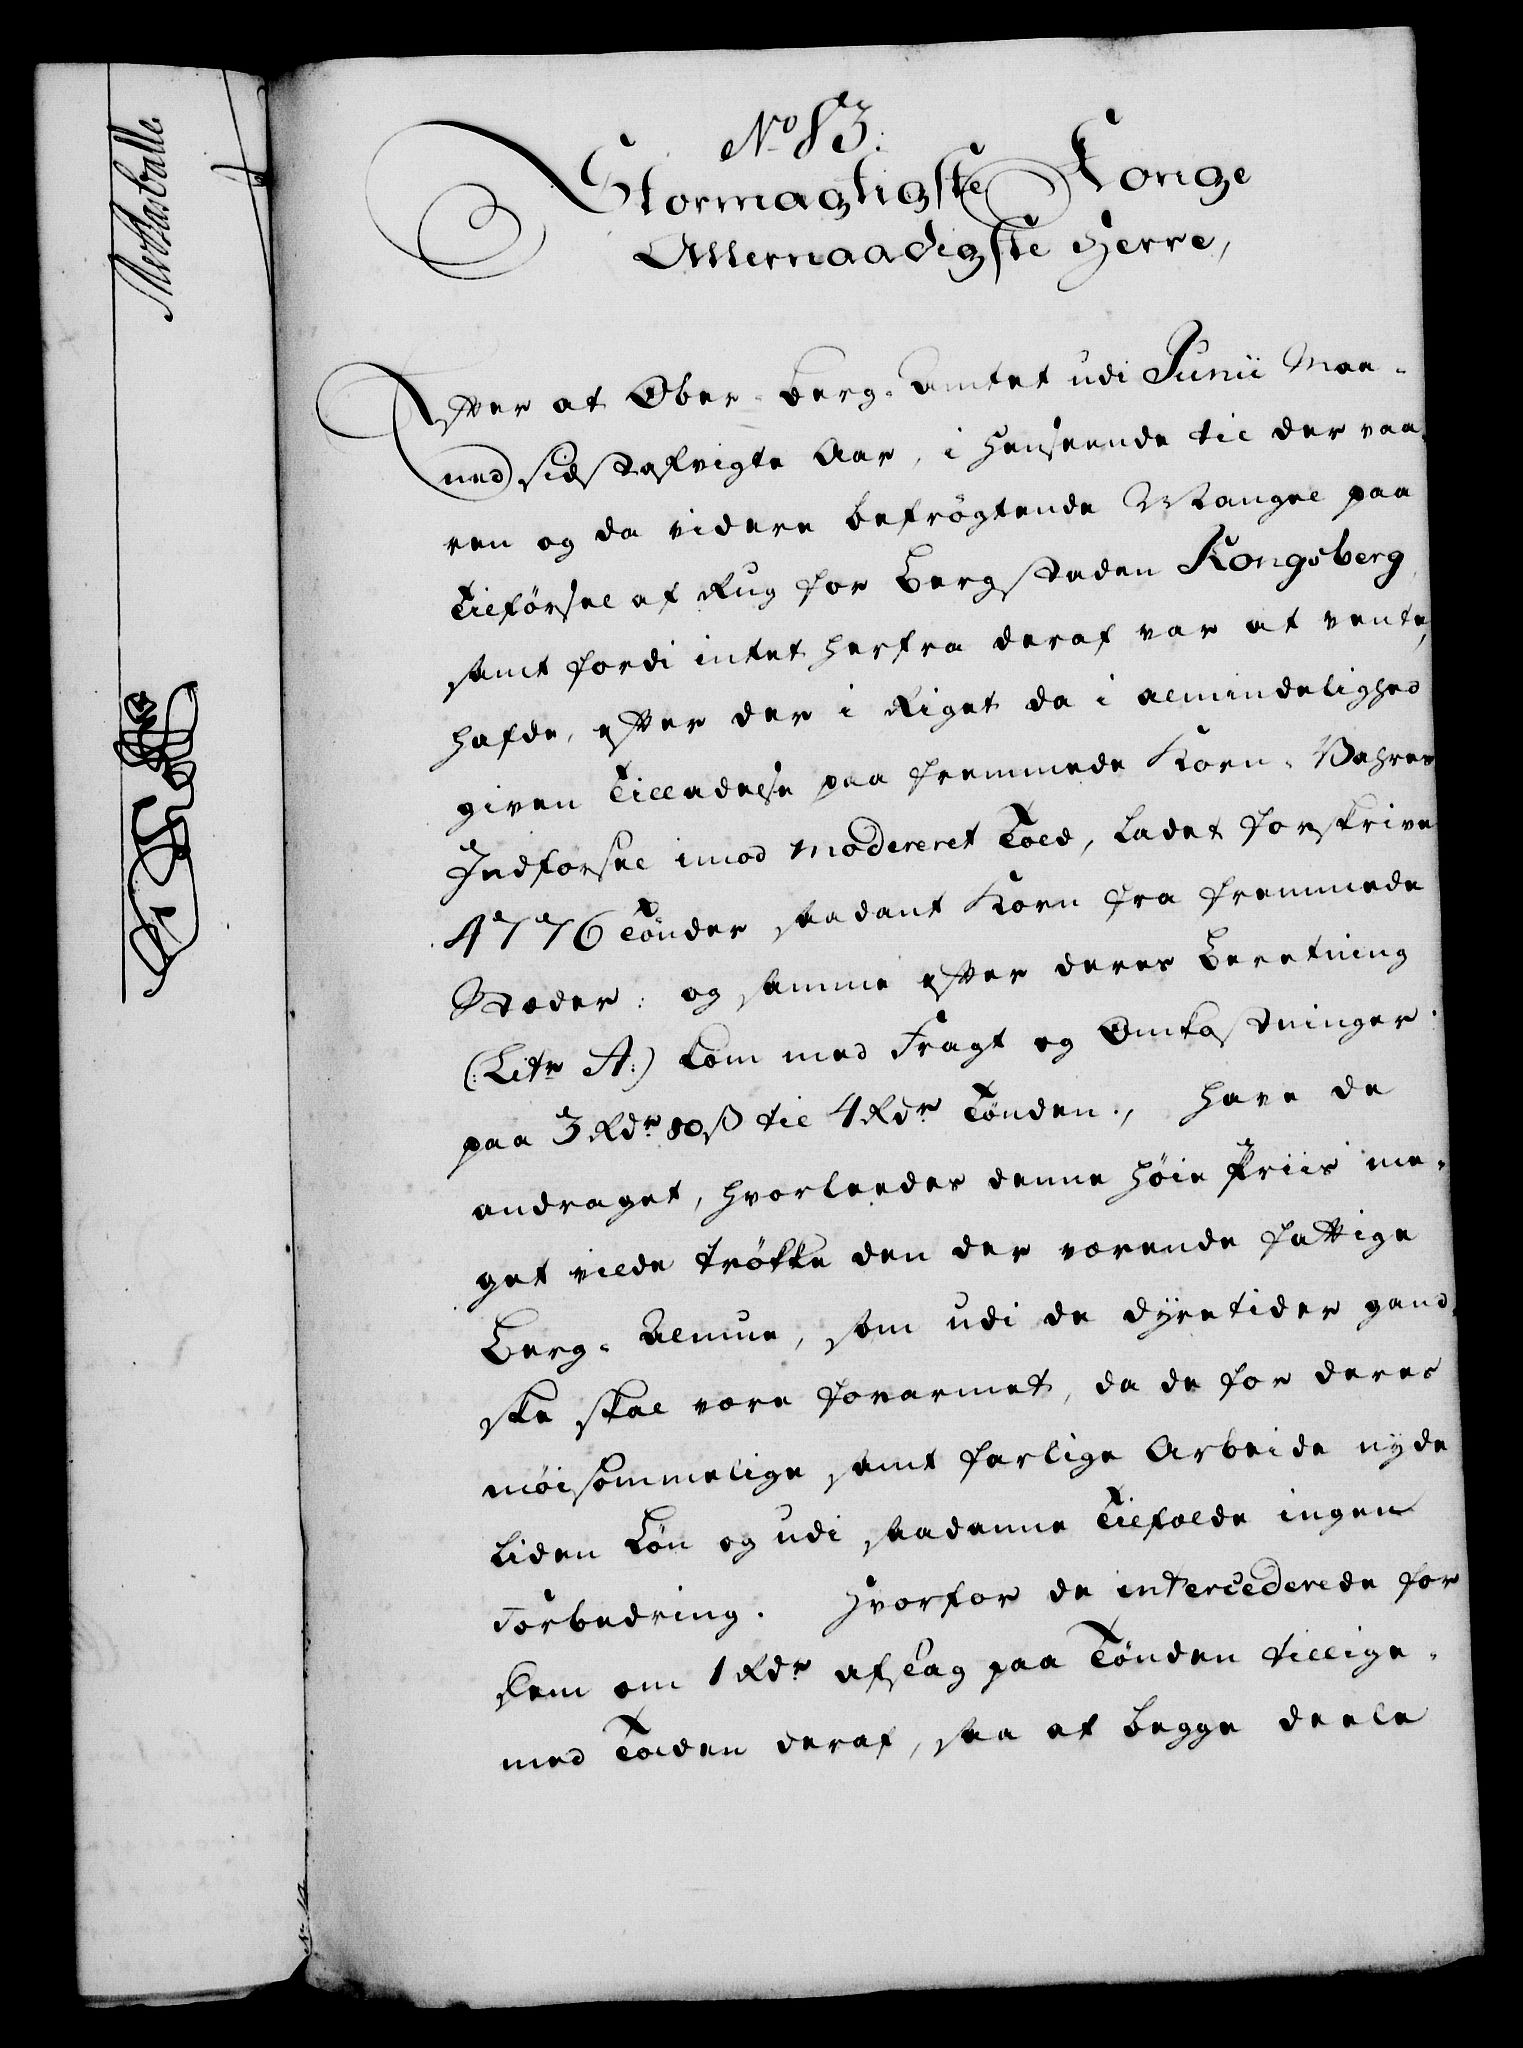 No 83.
Stormægtigste Konge
Allernaadigste Herre,
Efter at Ober-Berg-Amtet udi Junii Maa-
ned sidstafvigte Aar, i Henseende til der vaa-
ren og da videre befrögtende Mangel paa
Tilförsel af Rug for Bergstaden Kongsberg,
samt fordi intet herfra deraf var at vente,
hafde, efter der i Riget da i almindelighed
given Tilladelse paa fremmede Korn-Vahrer
Indforsel imod modereret Told, ladet forskrive
4776 Tönder saadant Korn fra fremmede
Stæder: og samme efter deres Beretning
(:Litr A:) kom med Fragt og Omkostninger
paa 3 Rdr 80 ß til 4 Rdr Tönden., have de
andraget, hvorleedes denne höie Priis me-
get vilde trökke den der værende fattige
Berg-Almue, som udi de dyretider gand-
ske skal være forarmet, da de for deres
möisommelige samt farlige Arbeide nyde
liden Lön og udi saadanne Tilfælde ingen
Forbedring. Hvorfor de intercederede for
dem om 1 Rdr afslag paa Tönden tillige-
med Tolden deraf, saa at begge deele